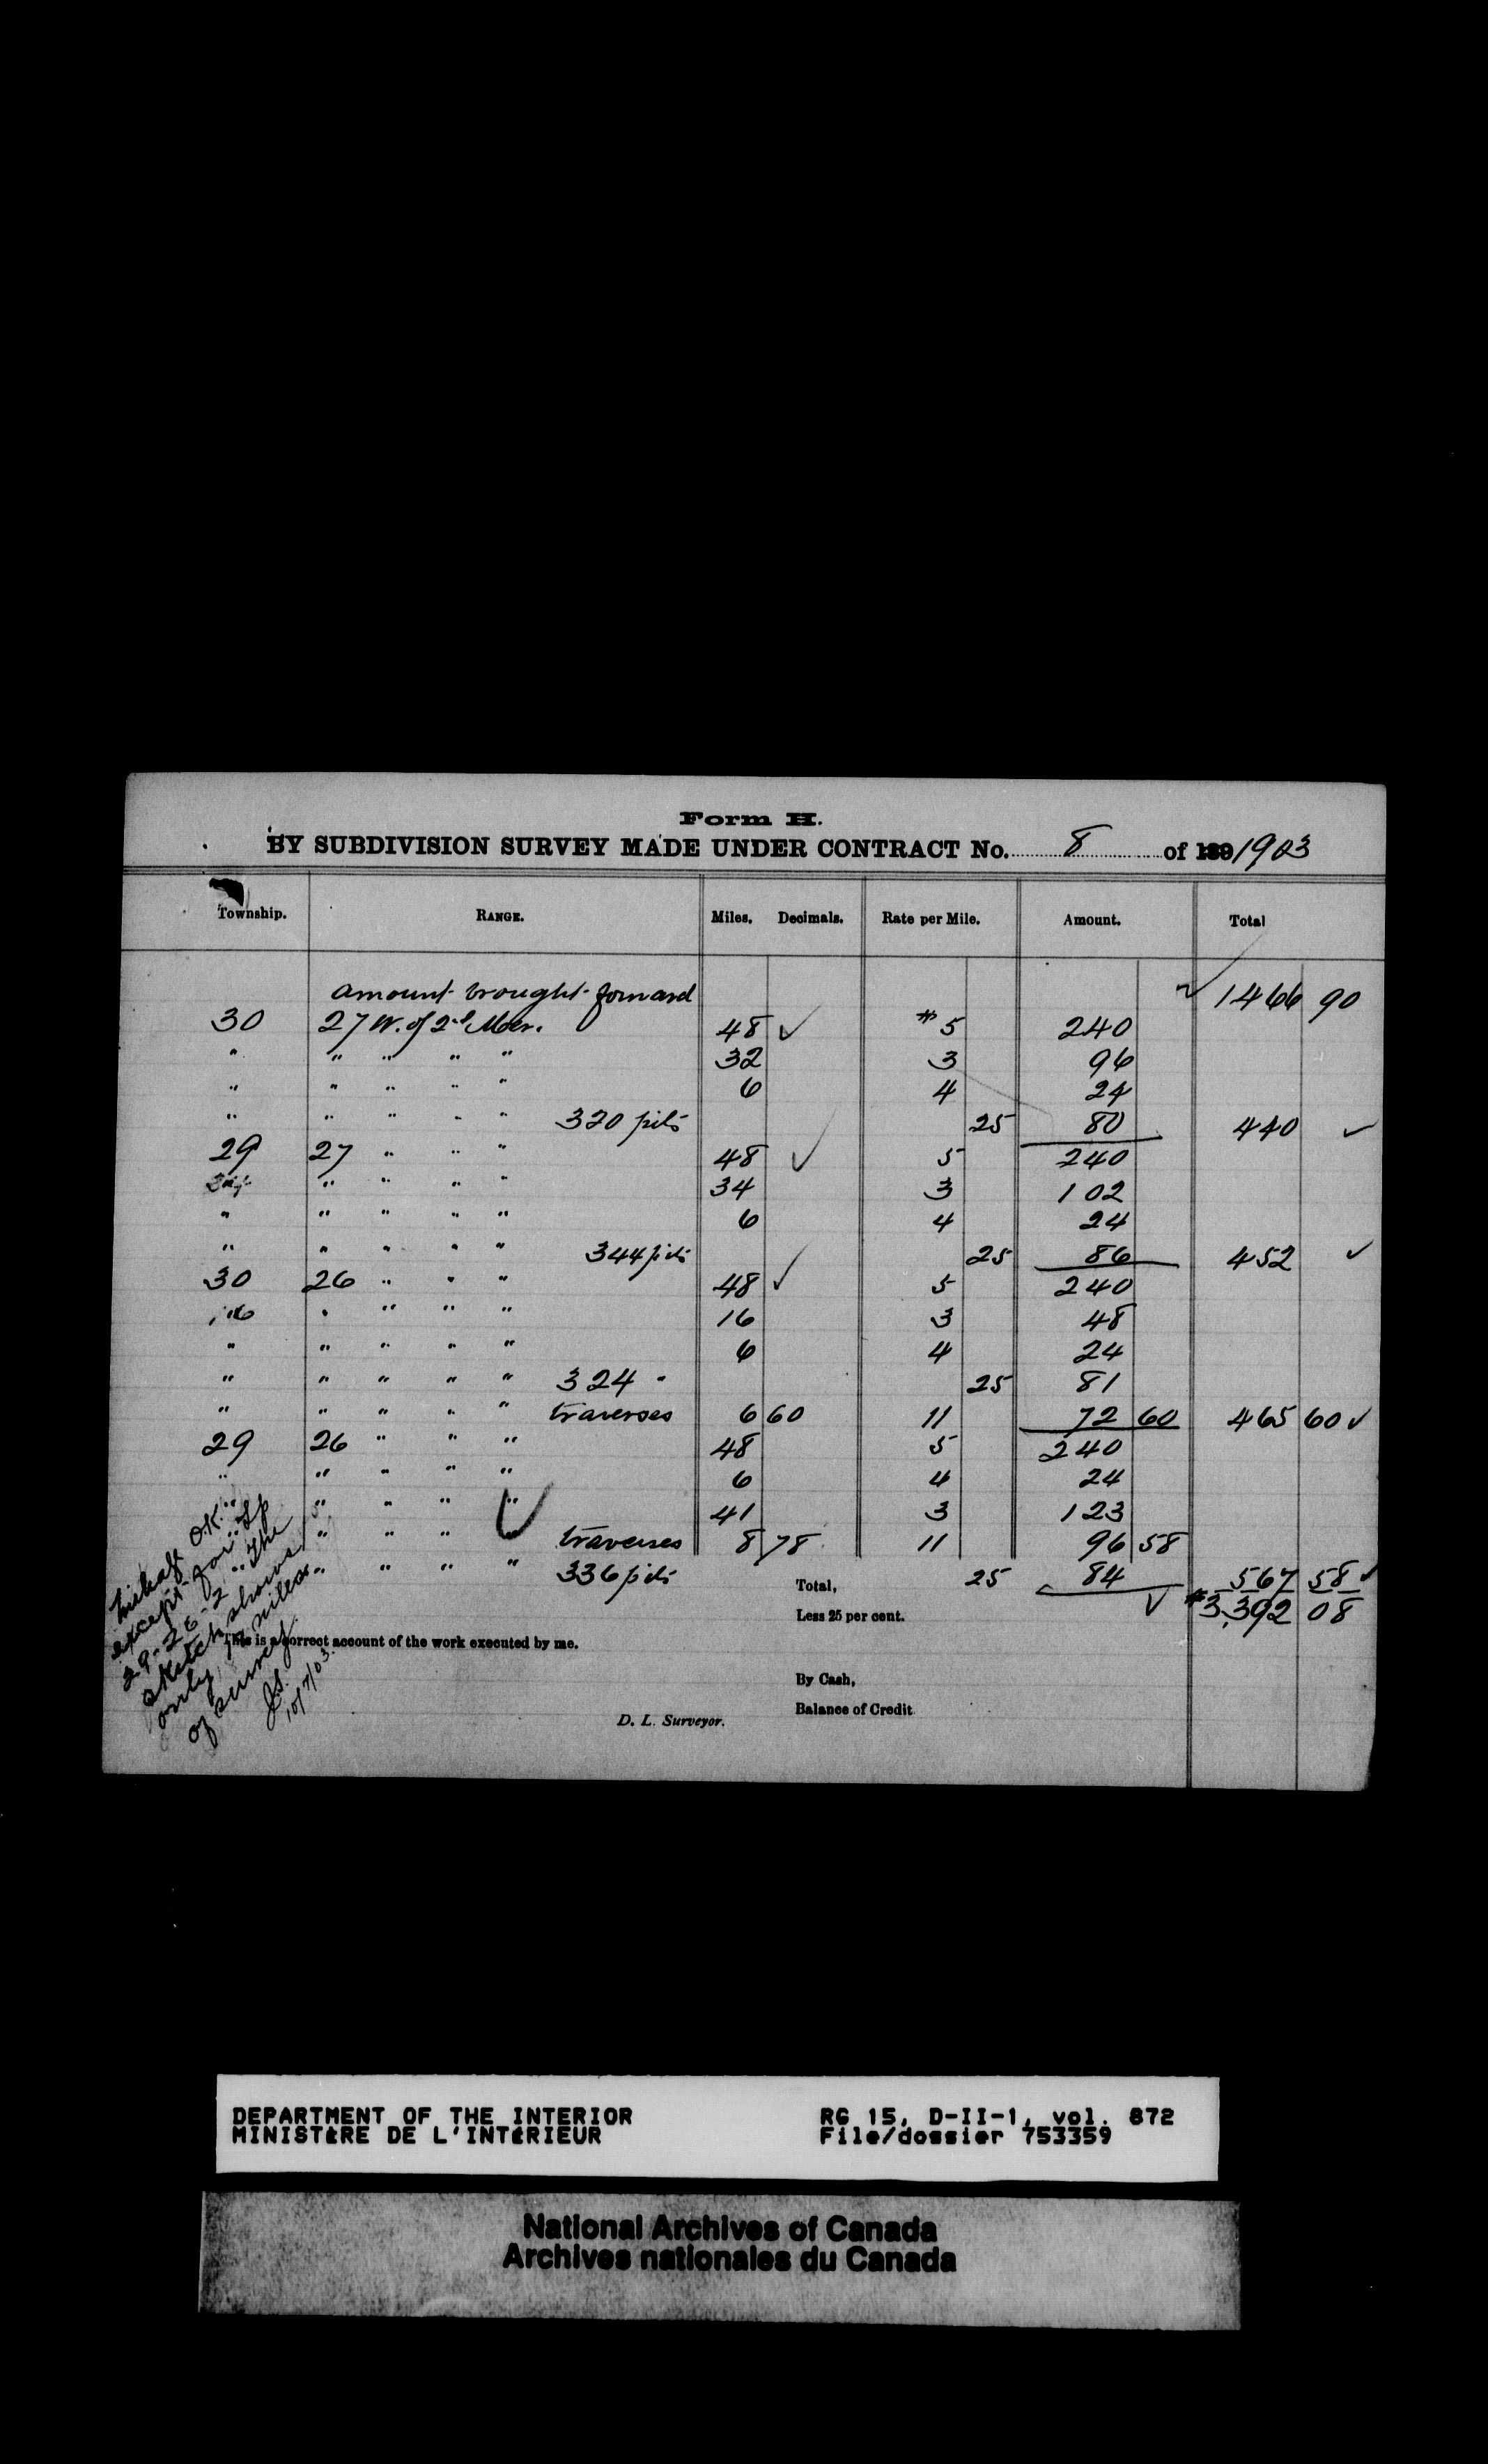 Form H.
BY SUBDIVISION SURVEY MADE UNDER CONTRACT No. 8 of 189 1903
Township. RANGE. Miles. Decimals. Rate per Mile. Amount. Total
Amount brought forward ✓ 1466 90
30 27 W. of 2nd Mer. 48 ✓ $5 240
" " " " " 32 3 96
" " " " " 6 4 24
" " " " " 320 pits 25 80 440 ✓
29 27 " " " 48 ✓ 5 240
" " " " 34 3 102
" " " " " 6 4 24
" " " " " 344 pits 25 86 452 ✓
30 26 " " " 48 ✓ 5 240
" " " " 16 3 48
" " " " " 6 4 24
" " " " " 324 " 25 81
" " " " " traverses 6 60 11 72 60 465 60 ✓
29 26 " " " 48 5 240
" " " " " 6 4 24
" " " " " 41 3 123
" " " traverses 8 78 11 96 58
" " " " 336 pits 25 84 567 58 ✓
Total, ✓ $3,392 08
Less 25 per cent.
Mileage O.K.
except for Tp
29-26-2 " The
sketch shows
only miles
of survey.
J.S.
10/7/03.
This is a correct account of the work executed by me.
By Cash,
Balance of Credit
D. L. Surveyor.
DEPARTMENT OF THE INTERIOR RG 15, D-II-1, vol. 872
MINISTÈRE DE L'INTÉRIEUR File/dossier 753359
National Archives of Canada
Archives nationales du Canada